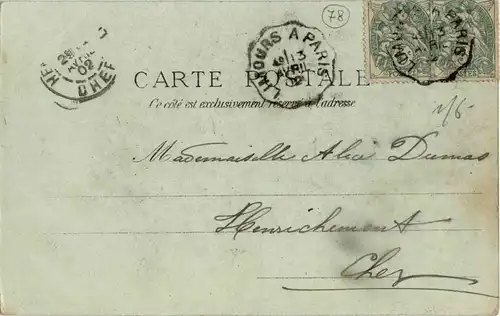 78
LIMOURS A PARIS
13
AVRIL
02
LIMOURS A PARIS
CARTE POSTALE
Ce côté est exclusivement réservé à l'adresse
AVRIL
02
CHER
Mademoiselle Alice Dumas
Henrichemont
Cher